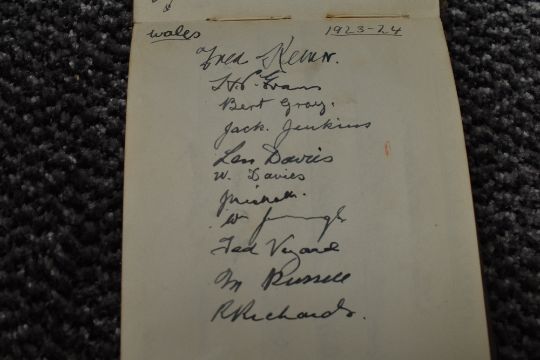 Wales 1923-24
Fred Keenor.
H.P. Evans
Bert Gray.
Jack. Jenkins
Len Davies
W. Davies
J Nicholls.
W Jennings
Ted Vizard
M Russell
R Richards.